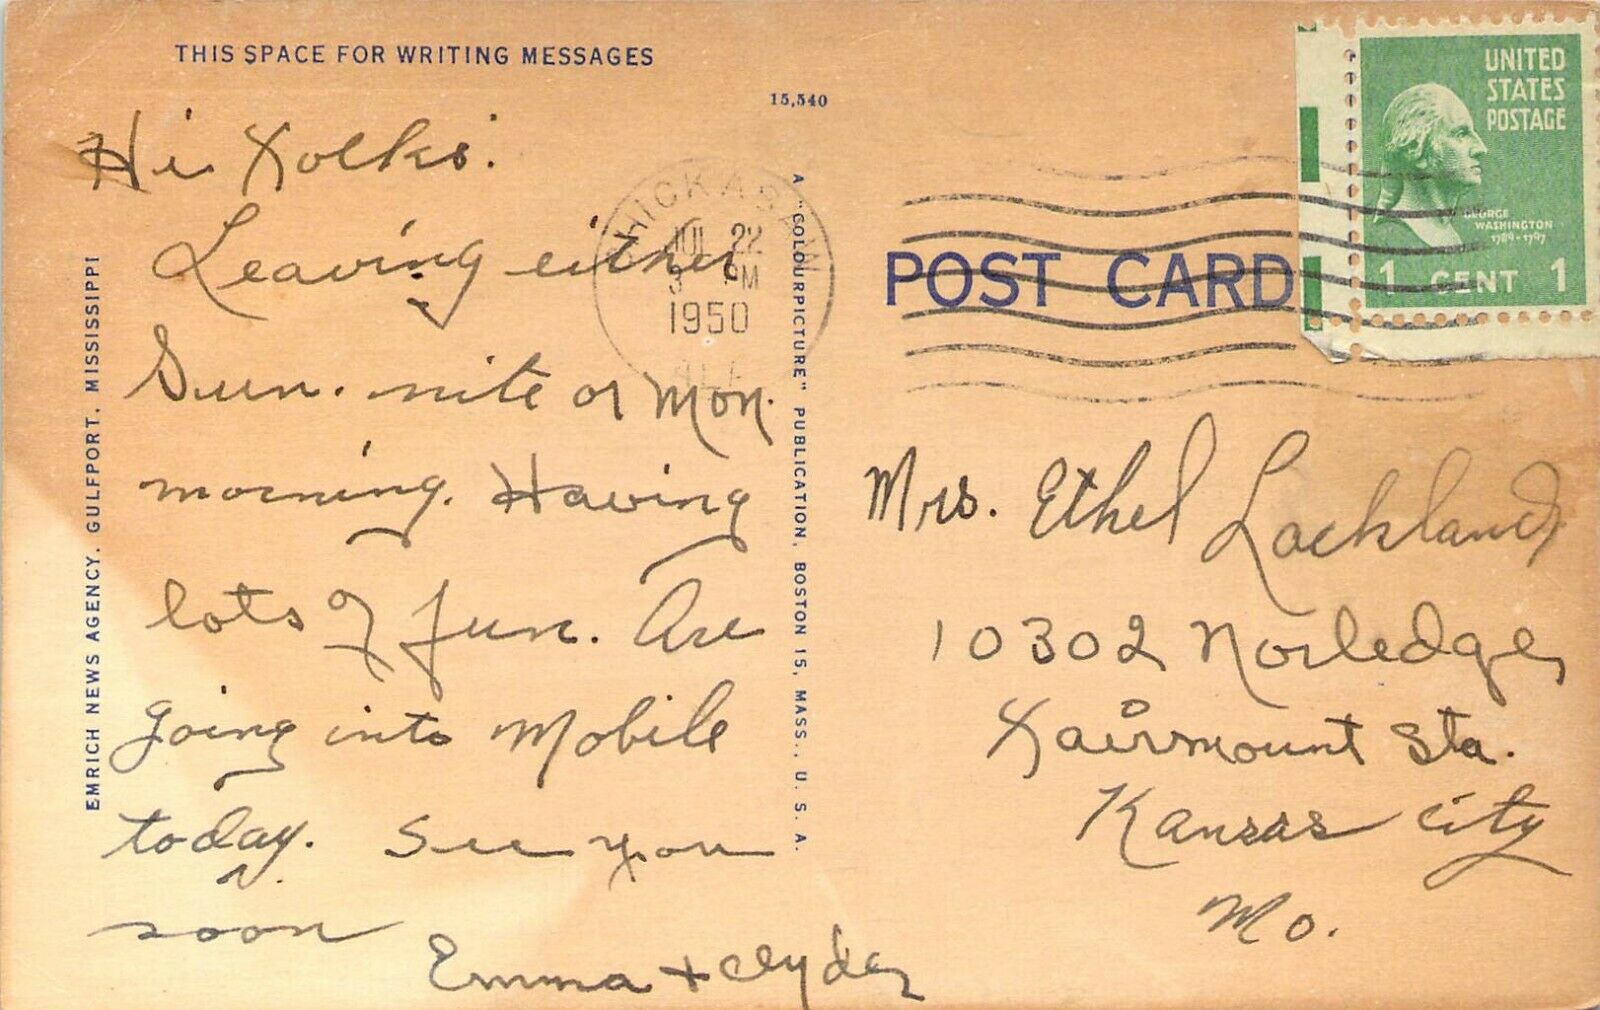 THIS SPACE FOR WRITING MESSAGES
15,540
Hi Folks:
Leaving either
Sun. nite or Mon.
morning. Having
lots of fun. Are
going into Mobile
today. See you
soon
Emma + Clyde
EMRICH NEWS AGENCY, GULFPORT, MISSISSIPPI
A "COLOURPICTURE" PUBLICATION, BOSTON 15, MASS., U. S. A.
CHICKASAW
JUL 22
3 PM
1950
ALA
POST CARD
UNITED
STATES
POSTAGE
GEORGE
WASHINGTON
1789-1797
1 CENT 1
Mrs. Ethel Lockland
10302 Norledge,
Fairmount Sta.
Kansas City
Mo.